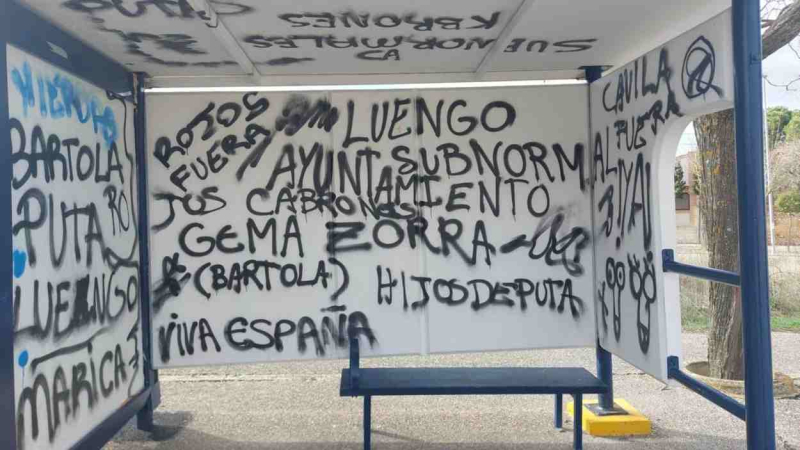 KBRONES
SUBNORMALES
MIERDA
BARTOLA
PUTA
RO
LUENGO
MARICA
ROJOS
FUERA
LUENGO
AYUNTAMIENTO
SUBNORMAL
CABRONES
GEMA ZORRA
(BARTOLA)
HIJOS DE PUTA
VIVA ESPAÑA
CAVILA
FUERA
¡YA!